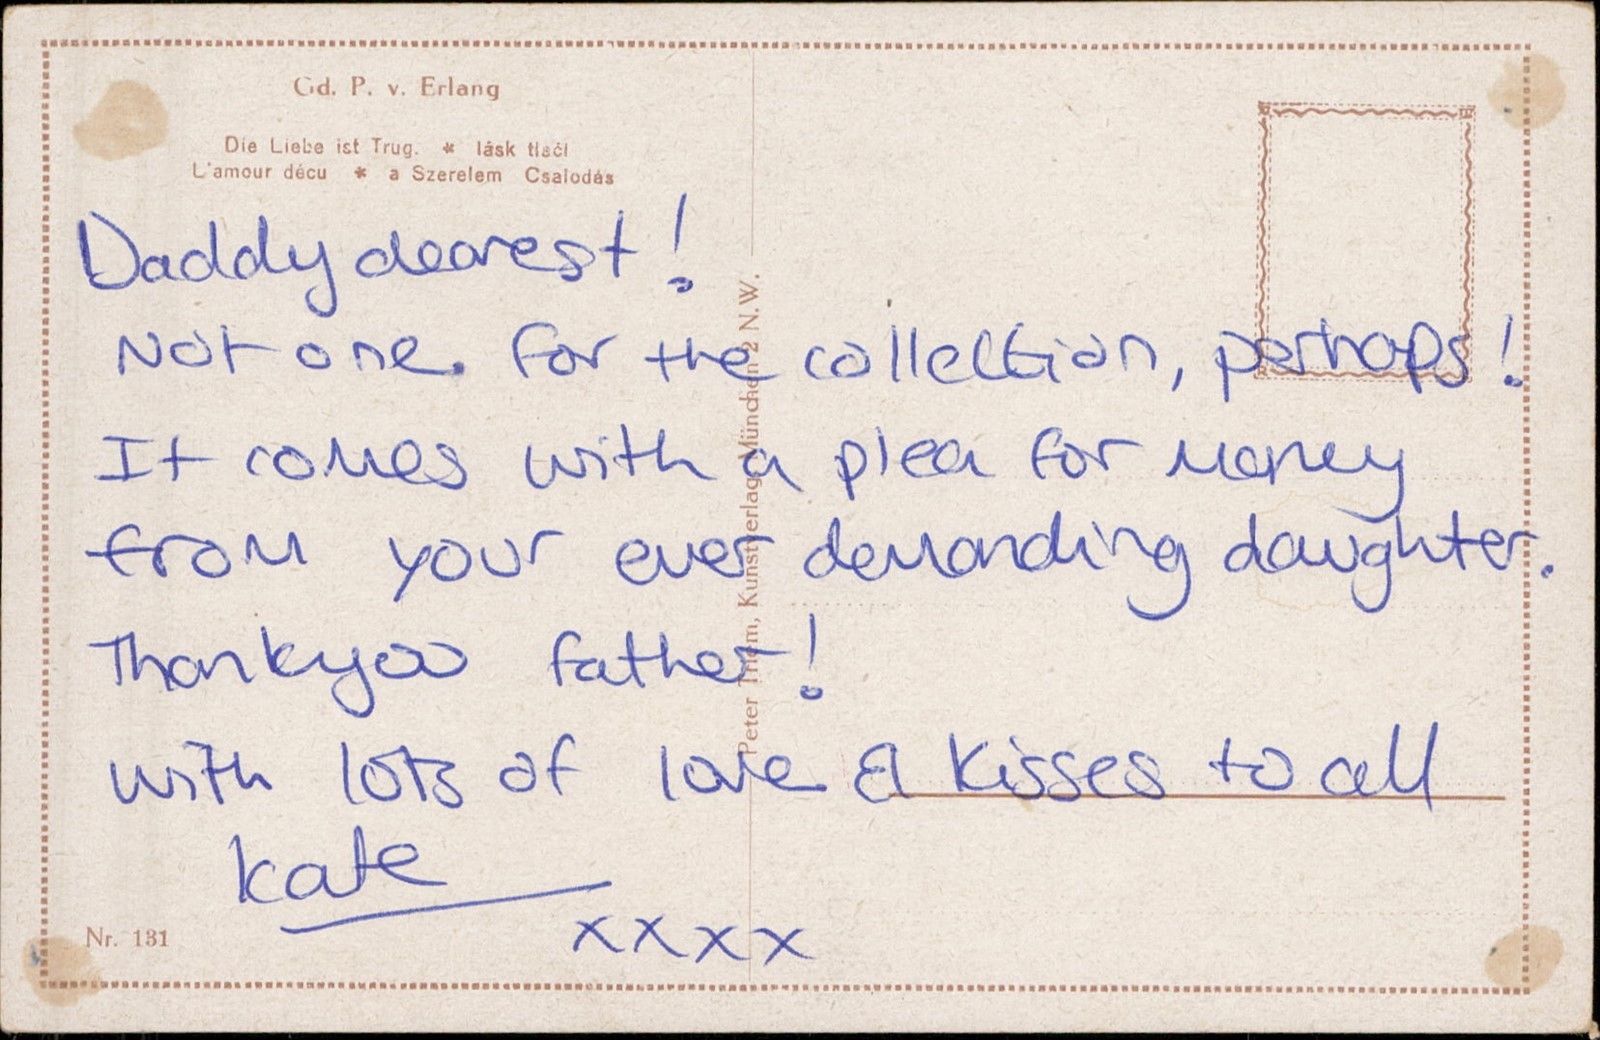 Gd. P. v. Erlang
Die Liebe ist Trug. * lásk tlačí
L'amour décu * a Szerelem Csalodás
Daddy dearest!
Not one. for the collection, perhaps!
It comes with a plea for money
from your ever demanding daughter.
Thankyoo father!
with lots of love & kisses to all
Kate
xxxx
Nr. 131
Peter Thom, Kunstverlag, München 2 N.W.